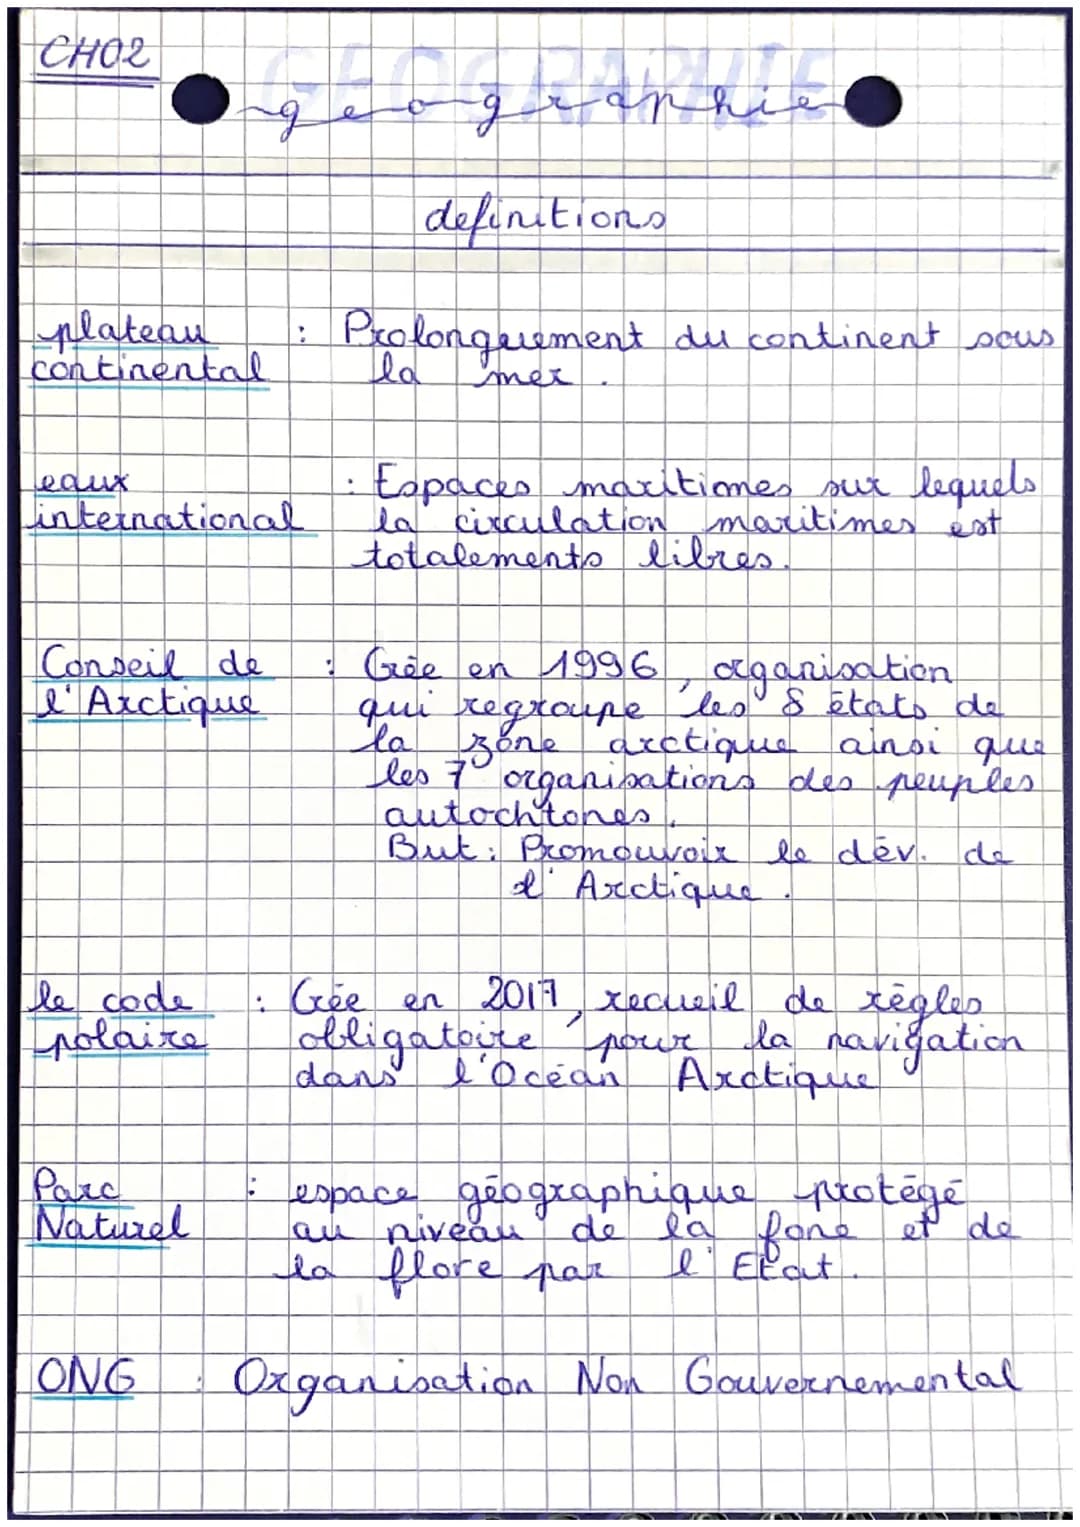 CH02
GEOGRAPHIE
geographie
definitions
plateau : Prolonguement du continent sous
continental la mer.
eaux : Espaces maritimes sur lequels
international la circulation maritimes est
totalements libres.
Conseil de : Crée en 1996, organisation
l'Arctique qui regroupe les 8 états de
la zone arctique ainsi que
les 7 organisations des peuples
autochtones.
But : Promouvoir le dév. de
l'Arctique.
le code : Crée en 2017, recueil de règles
polaire obligatoire pour la navigation
dans l'Océan Arctique
Parc : espace géographique protégé
Naturel au niveau de la fone et de
la flore par l'Etat.
ONG : Organisation Non Gouvernemental